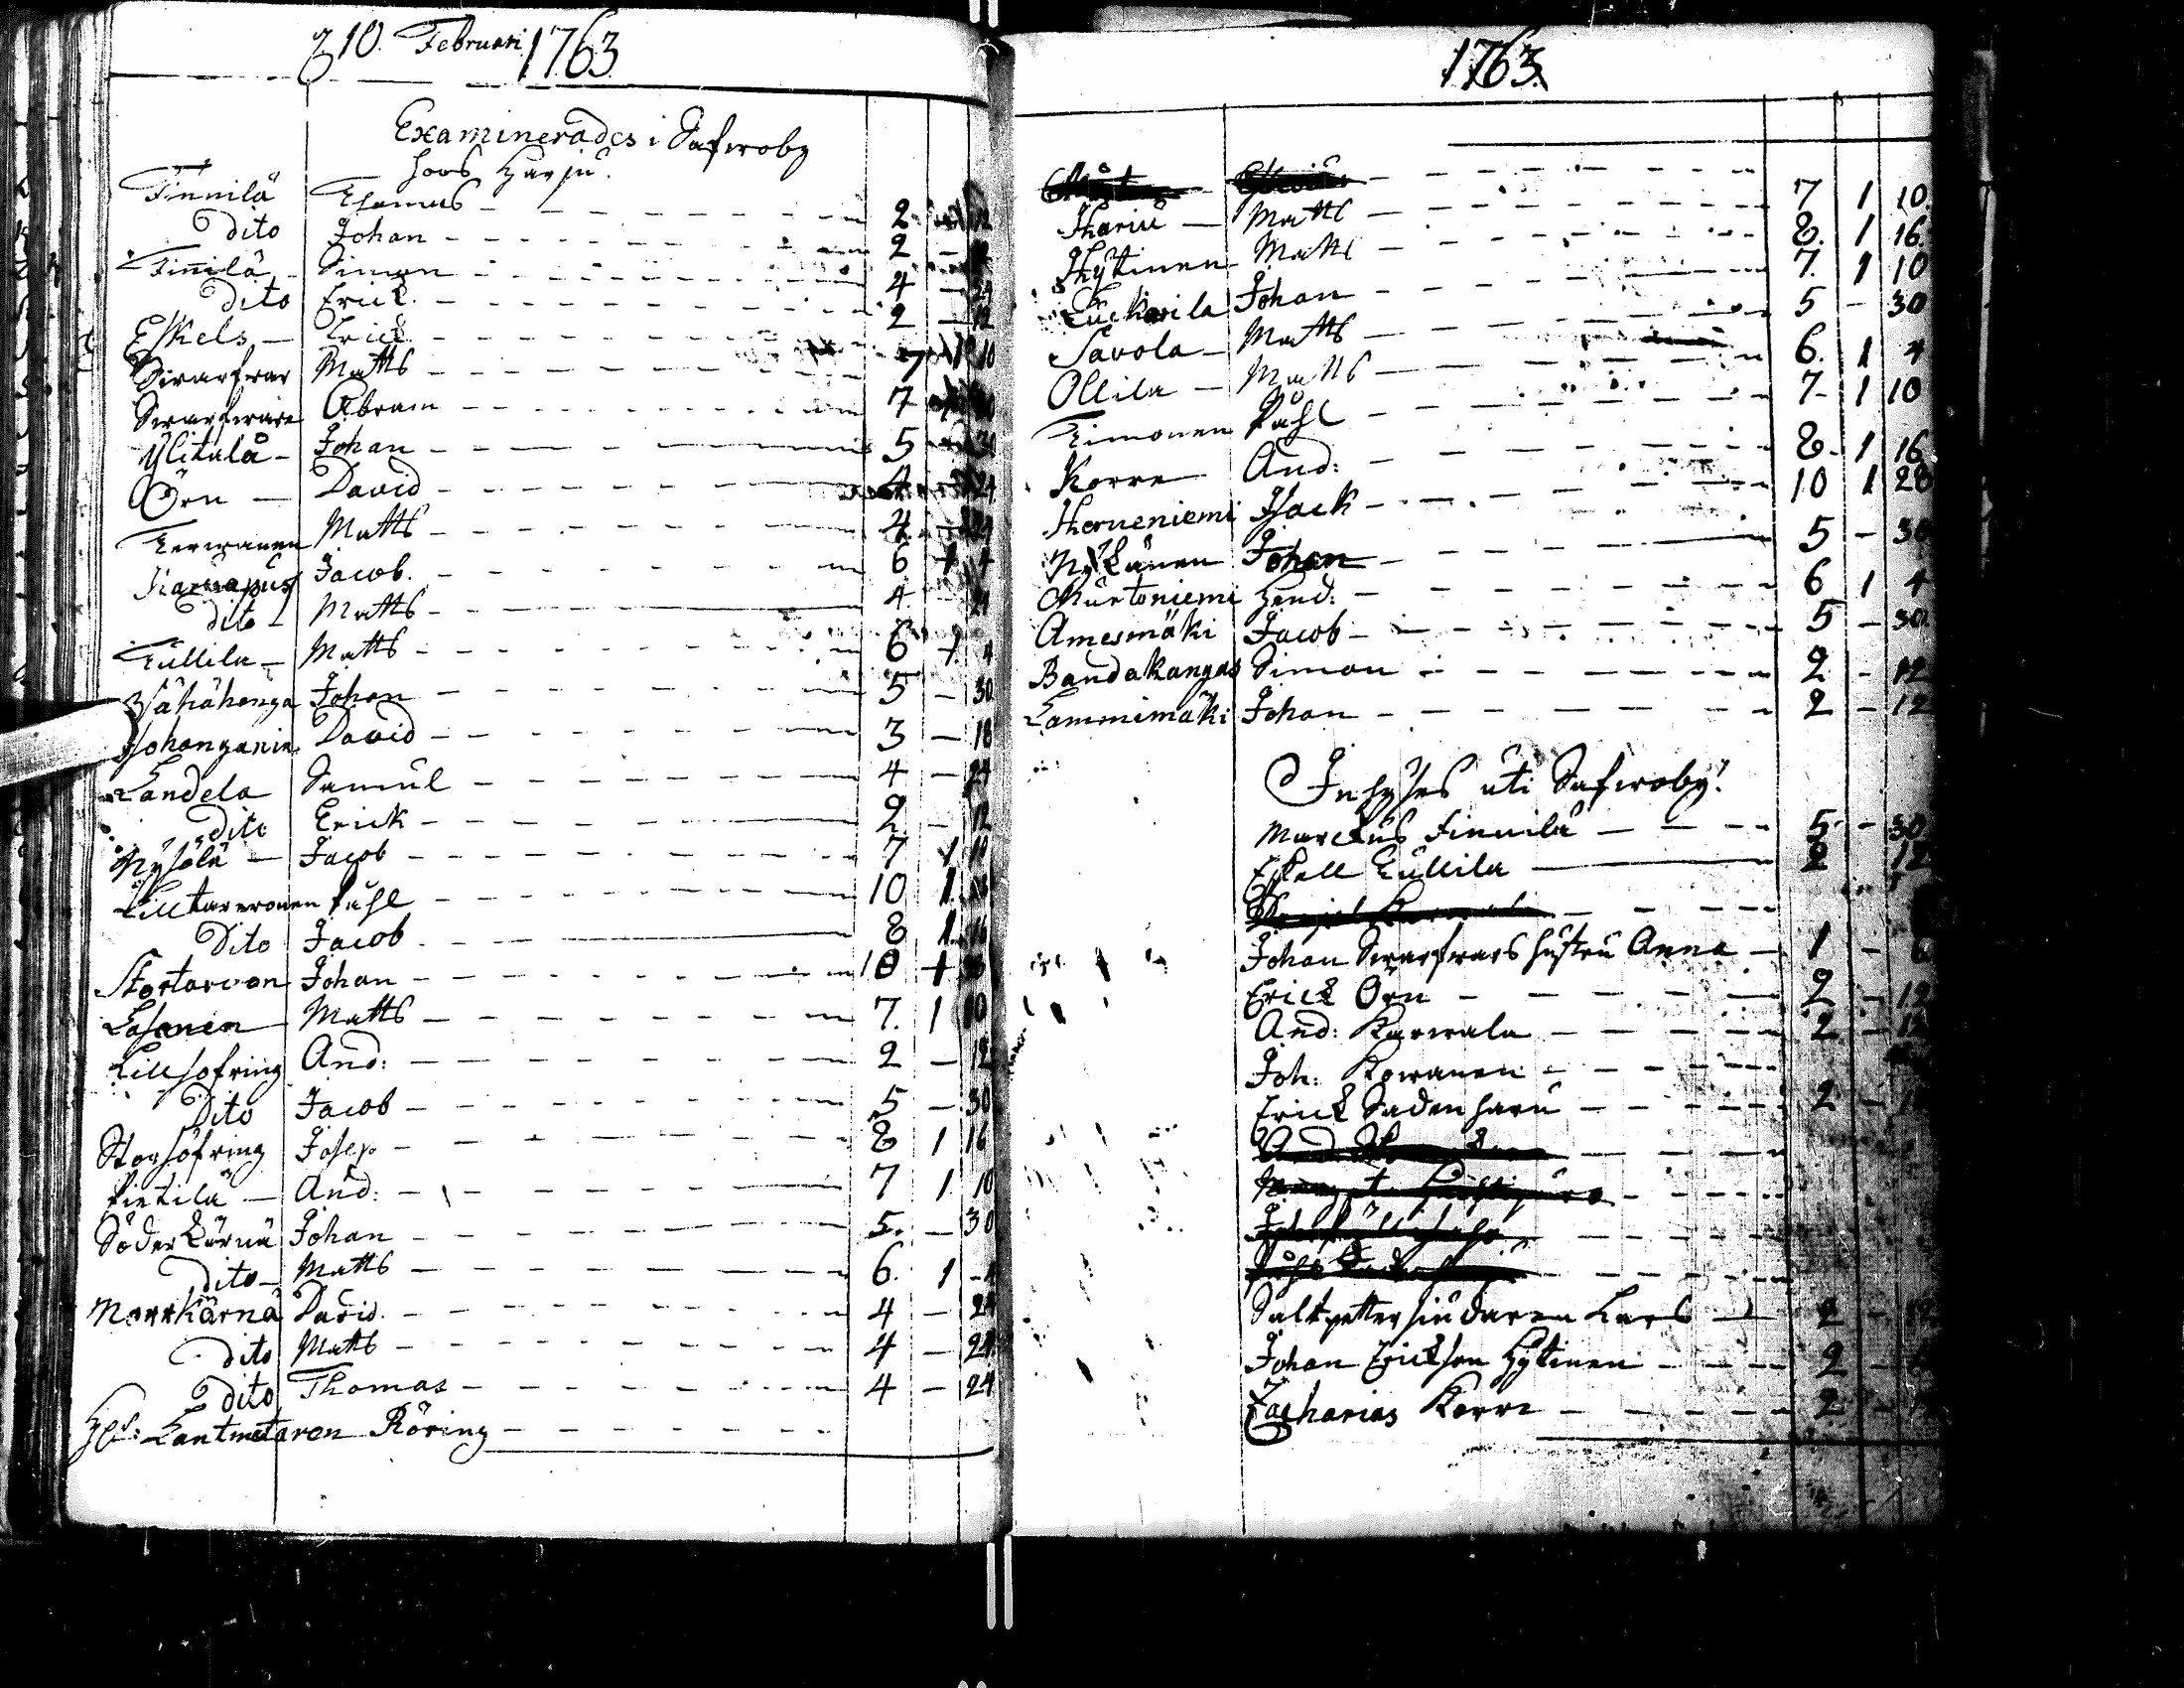 d 10. Februari 1763
Examinerades i Safwoby
hoos Harju.
Finnilä Thomas 2 - 12
Dito Johan 2 - 12
Finnilä Simon 4 - 24
Dito Erick 2 - 12
Eskels Erick
Swarfvar Matts 7 1 10
Swarfware Abram 7 1 10
Ylitalå Johan 5 - 30
Örn David 4 - 24
Terwanen Matts 4 - 24
Jacob 6 1 4
dito Matts 4 - 24
Tullila Matts 6 1 4
Wähähonga Johan 5 - 30
David 3 - 18
Landela Samuel 4 - 24
Dito Erick 2 - 12
Nysölä Jacob 7 1 10
Lilltarwonen Påhl 10 1 28
Dito Jacob 8 1 16
Stortarvon Johan 10 1 28
Lasanen Matts 7. 1 10
Lillsofring And: 2 - 12
Dito Jacob 5 - 30
Storsofring Josep 8 1 16
Pietilä And: 7 1 10
Söderkärnä Johan 5. - 30
Dito Matts 6. 1 4
Norrkärnä David. 4 - 24
dito Matts 4 - 24
dito Thomas 4 - 24
Lantmetaren Röring
1763.
Harju Matts 7 1 10
Hytinen Matts 8. 1 16
Luckarila Johan 7. 1 10
Savola Matts 5 - 30
Ollila Matts 6. 1 4
Timonen Påhl 7 1 10
Korre And: 8 1 16
Herneniemi Isack 10 1 28
Nykänen Johan 5 - 30
Murtoniemi Hend: 6 1 4
Amesmäki Jacob 5 - 30
Bandakangas Simon 2 - 12
Lammimäki Johan 2 - 12
Inhyses uti Safwoby.
Marckus Finnilä 5 - 30
Eskell Tullila 2 12
Johan Swarfvars hustru Anna 1 - 6
Erick Örn 2 - 12
And: Karwala 2 - 12
Joh: Kowanen
Erick Sadenharju 2 -
Saltpettersiudaren Lars 2 - 12
Johan Erickson Hytinen 2 -
Zacharias Korre 2 -